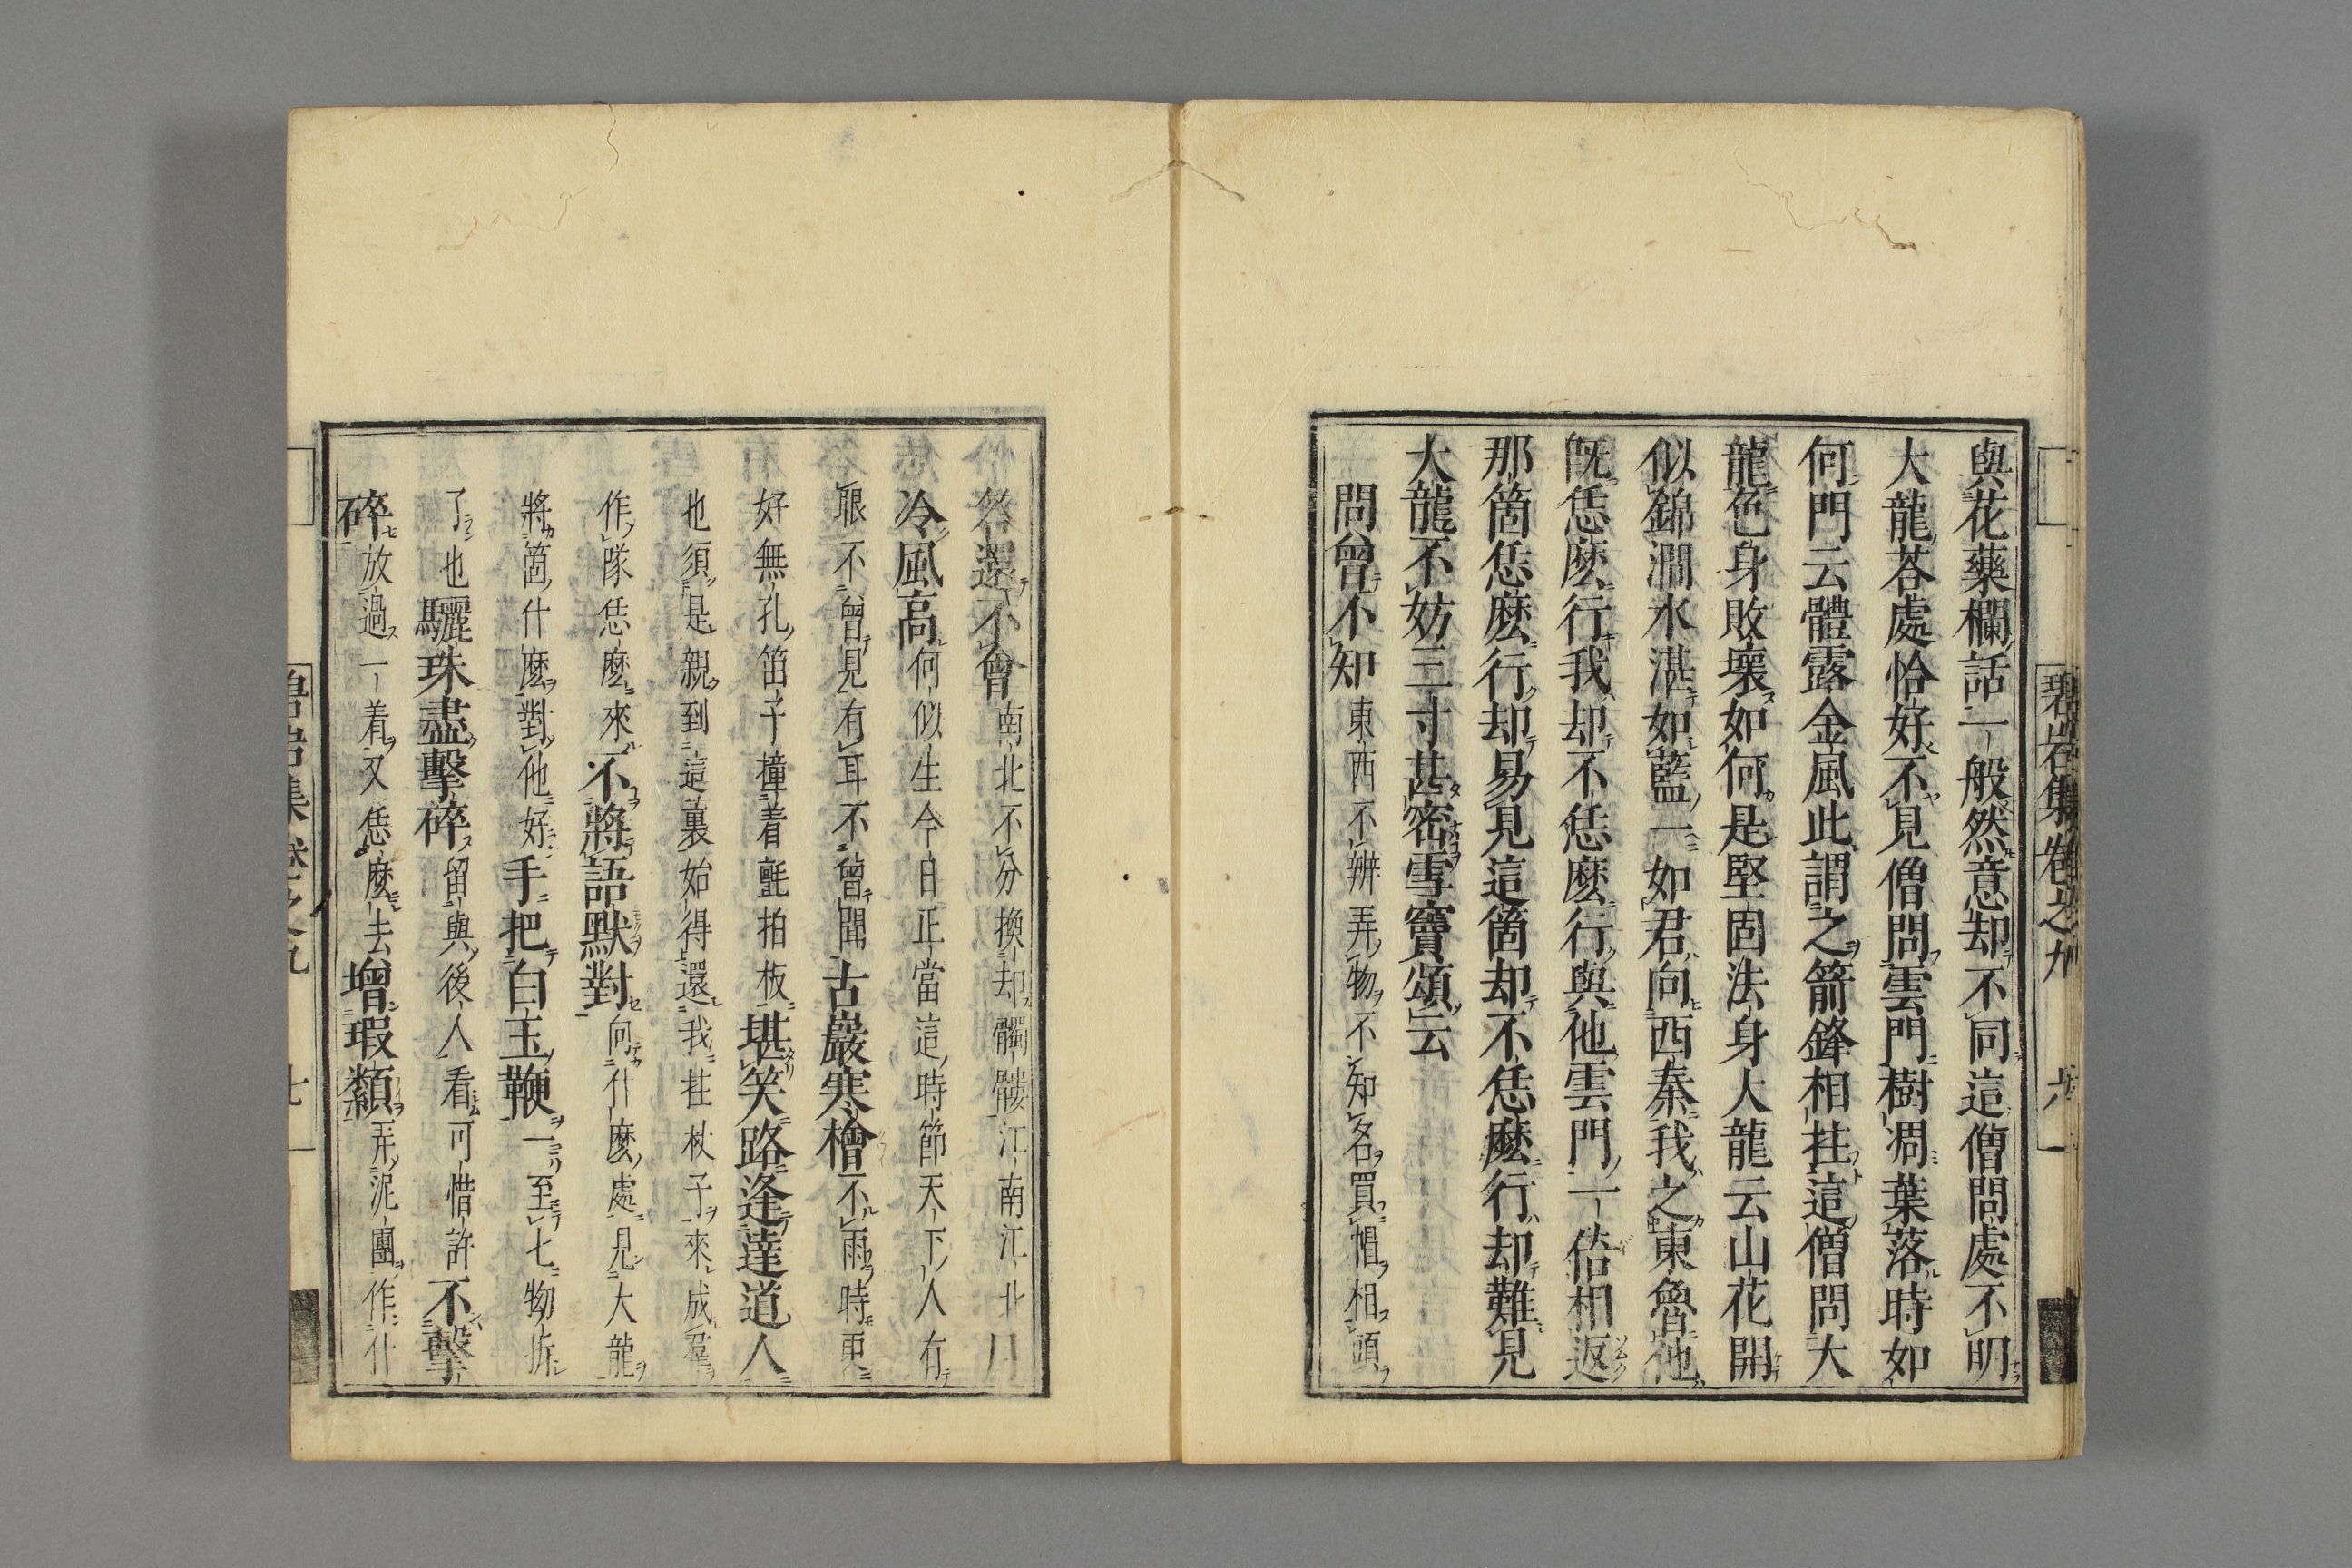 碧岩集卷之九 六
與花藥欄話一般然意却不同這僧問處不明
大龍荅處恰好不見僧問雲門樹凋葉落時如
何門云體露金風此謂之箭鋒相拄這僧問大
龍色身敗壞如何是堅固法身大龍云山花開
似錦澗水湛如藍一如君向西秦我之東魯他
既恁麽行我却不恁麽行與他雲門一倍相返
那箇恁麽行却易見這箇却不恁麽行却難見
大龍不妨三寸甚密雪竇頌云
問曾不知東西不辨弄物不知名買帽相頭
荅還不會南北不分換却髑髏江南江北月
冷風高何似生今日正當這時節天下人有
眼不曾見有耳不曾聞古巖寒檜不雨時更
好無孔笛子撞着氈拍板堪笑路逢達道人
也須是親到這裏始得還我拄杖子來成羣
作隊恁麽來不將語默對向什麽處見大龍
將箇什麽對他好手把白玉鞭一至七物拆
了也驪珠盡擊碎留與後人看可惜許不擊
碎放過一着又恁麽去增瑕纇弄泥團作什
碧岩集卷之九 七